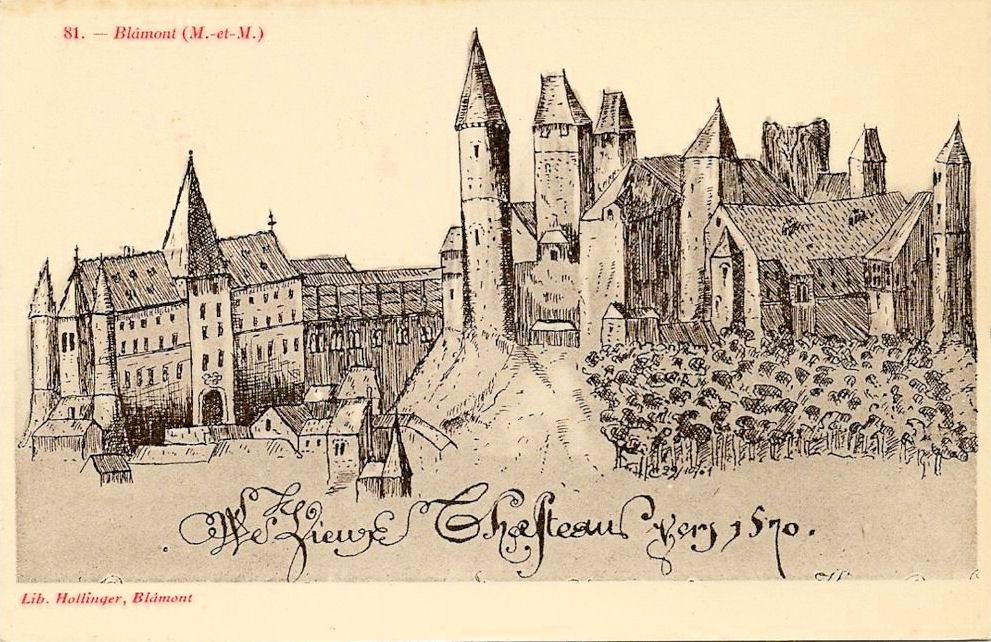 81. — Blâmont (M.-et-M.)
Le Vieux Chasteau vers 1570.
Lib. Hollinger, Blâmont